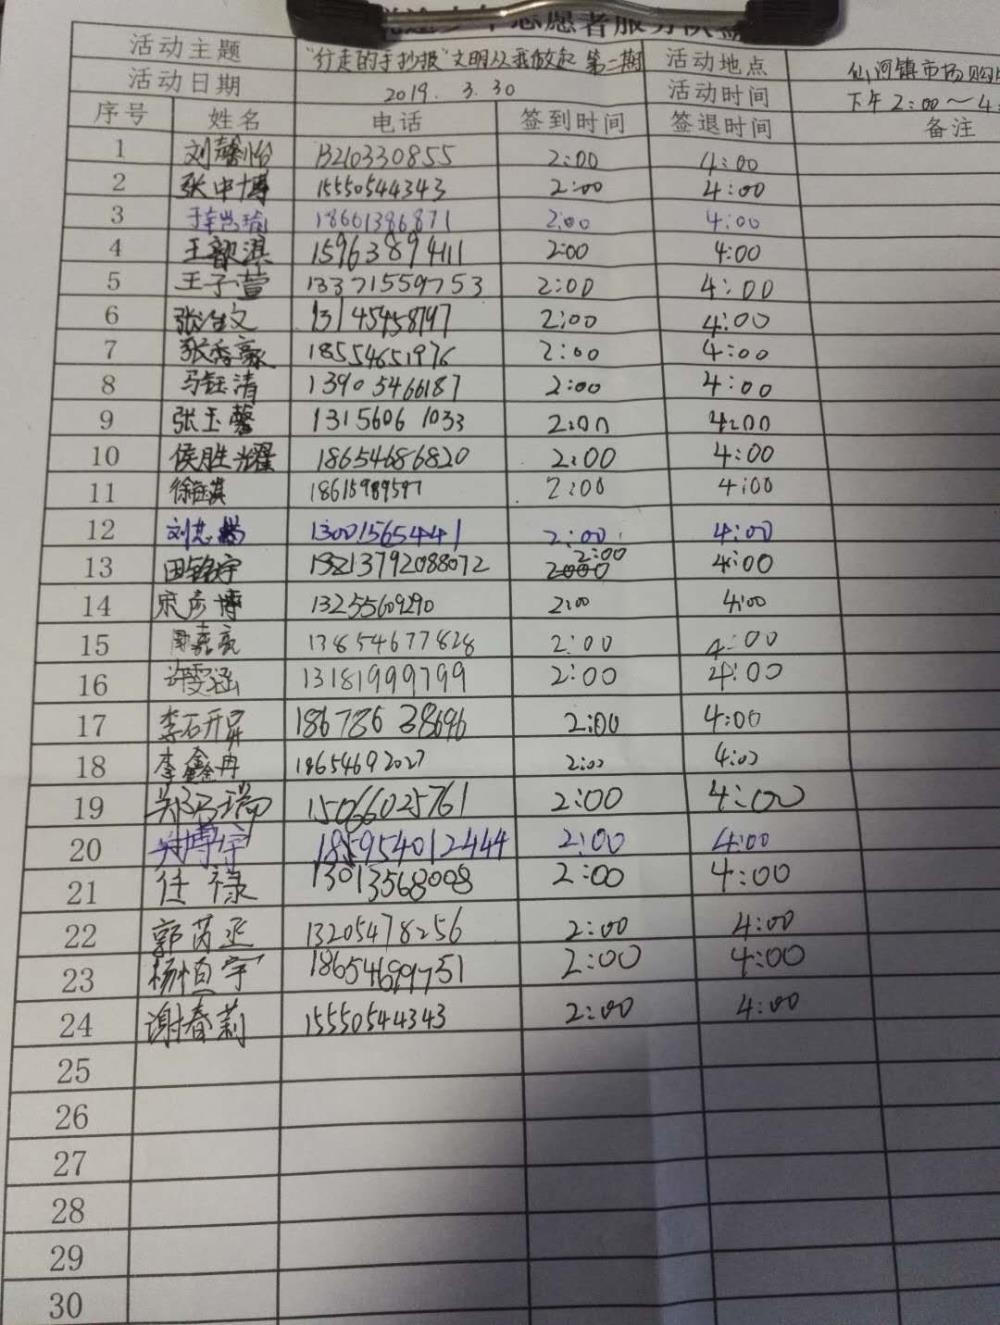 志愿者服务队
活动主题 "行走的手抄报"文明从我做起 第二期 活动地点 仙河镇市场购
活动日期 2019.3.30 活动时间 下午2:00~4:
序号 姓名 电话 签到时间 签退时间 备注
1 刘馨怡 13210330855 2:00 4:00
2 张中博 15550544343 2:00 4:00
3 18661386871 2:00 4:00
4 王歆淇 15963894111 2:00 4:00
5 王子萱 133715559753 2:00 4:00
6 张 文 13145458797 2:00 4:00
7 张秀 18554651976 2:00 4:00
8 马钰清 13905466187 2:00 4:00
9 张玉馨 13156061033 2:00 4:00
10 侯胜耀 18654686820 2:00 4:00
11 徐钰淇 18615989597 2:00 4:00
12 刘志 13001565441 2:00 4:00
13 田铭宇 2:00 4:00
14 宋彦博 13255609290 2:00 4:00
15 周嘉亮 13854677828 2:00 4:00
16 许雯涵 13181999799 2:00 4:00
17 李石开昇 18678638696 2:00 4:00
18 李鑫冉 18654692027 2:00 4:00
19 瑞 15066025761 2:00 4:00
20 博宇 185954012444 2:00 4:00
21 任禄 13013568008 2:00 4:00
22 郭芮丞 13205478256 2:00 4:00
23 杨恒宇 18654699751 2:00 4:00
24 谢春莉 15550544343 2:00 4:00
25
26
27
28
29
30